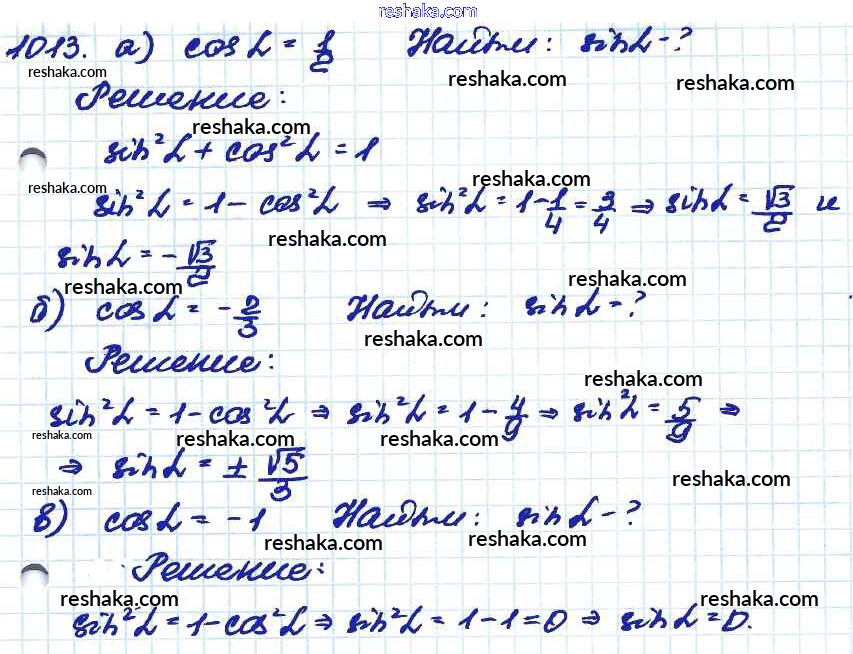 reshaka.com
1013. а) cos L = 1/2 Найти: sin L - ?
reshaka.com reshaka.com reshaka.com
Решение:
reshaka.com
sin² L + cos² L = 1
reshaka.com reshaka.com
sin² L = 1 - cos² L ⇒ sin² L = 1 - 1/4 = 3/4 ⇒ sin L = √3/2 и
reshaka.com
sin L = - √3/2
reshaka.com reshaka.com
б) cos L = - 2/3 Найти: sin L - ?
reshaka.com
Решение:
reshaka.com
sin² L = 1 - cos² L ⇒ sin² L = 1 - 4/9 ⇒ sin² L = 5/9 ⇒
reshaka.com reshaka.com reshaka.com
⇒ sin L = ± √5/3
reshaka.com reshaka.com
в) cos L = -1 Найти: sin L - ?
reshaka.com reshaka.com
Решение:
reshaka.com reshaka.com
sin² L = 1 - cos² L ⇒ sin² L = 1 - 1 = 0 ⇒ sin L = 0.